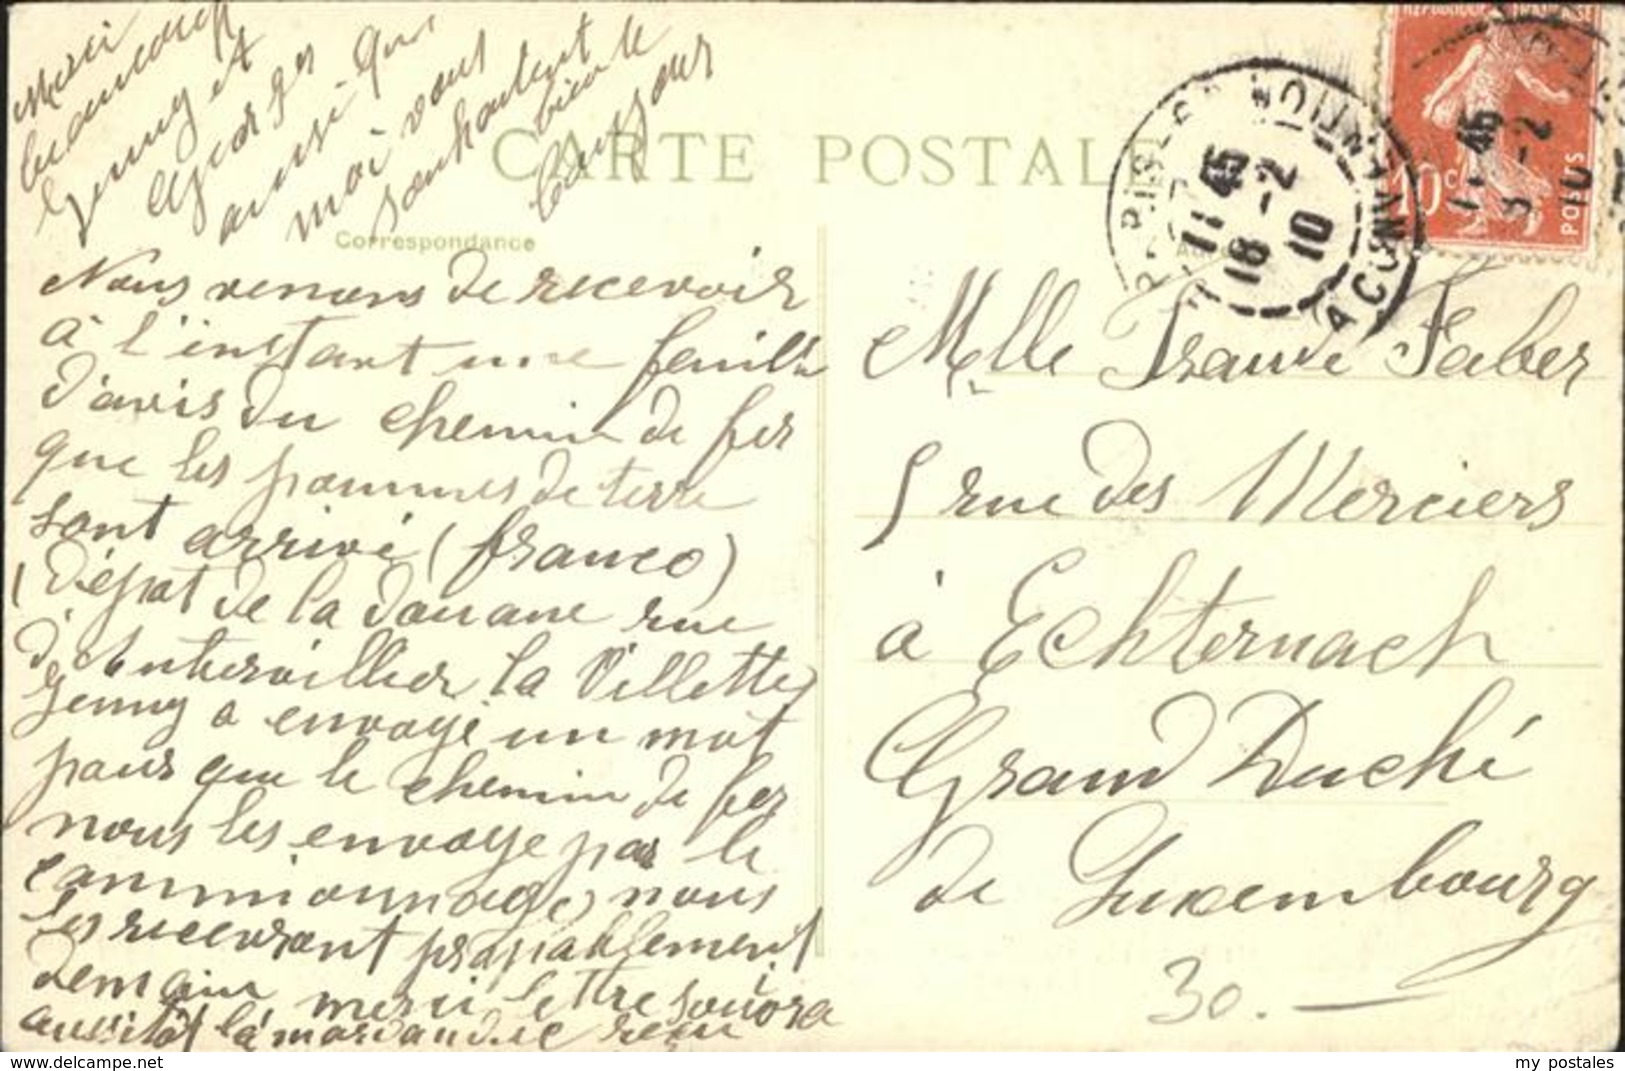 Merci
beaucoup
Jenny et
Georges
ainsi que
moi vous
souhaitent
bien le
bonjour
CARTE POSTALE
Correspondance
Nous venons de recevoir
à l'instant une feuille
d'avis du chemin de fer
que les pommes de terre
sont arrivé (franco)
(dépot de la douane rue
d'Aubervillier la Villette)
Jenny a envoyé un mot
pour que le chemin de fer
nous les envoye par le
camionnage, nous
les recevront probablement
demain merci lettre suivra
aussitôt la marchandise reçu
Mlle Franci Faber
5 rue des Merciers
à Echternach
Grand Duché
de Luxembourg
30.—
11 45
18 -2
10
11 45
-2
10
10c
POSTES
my postales